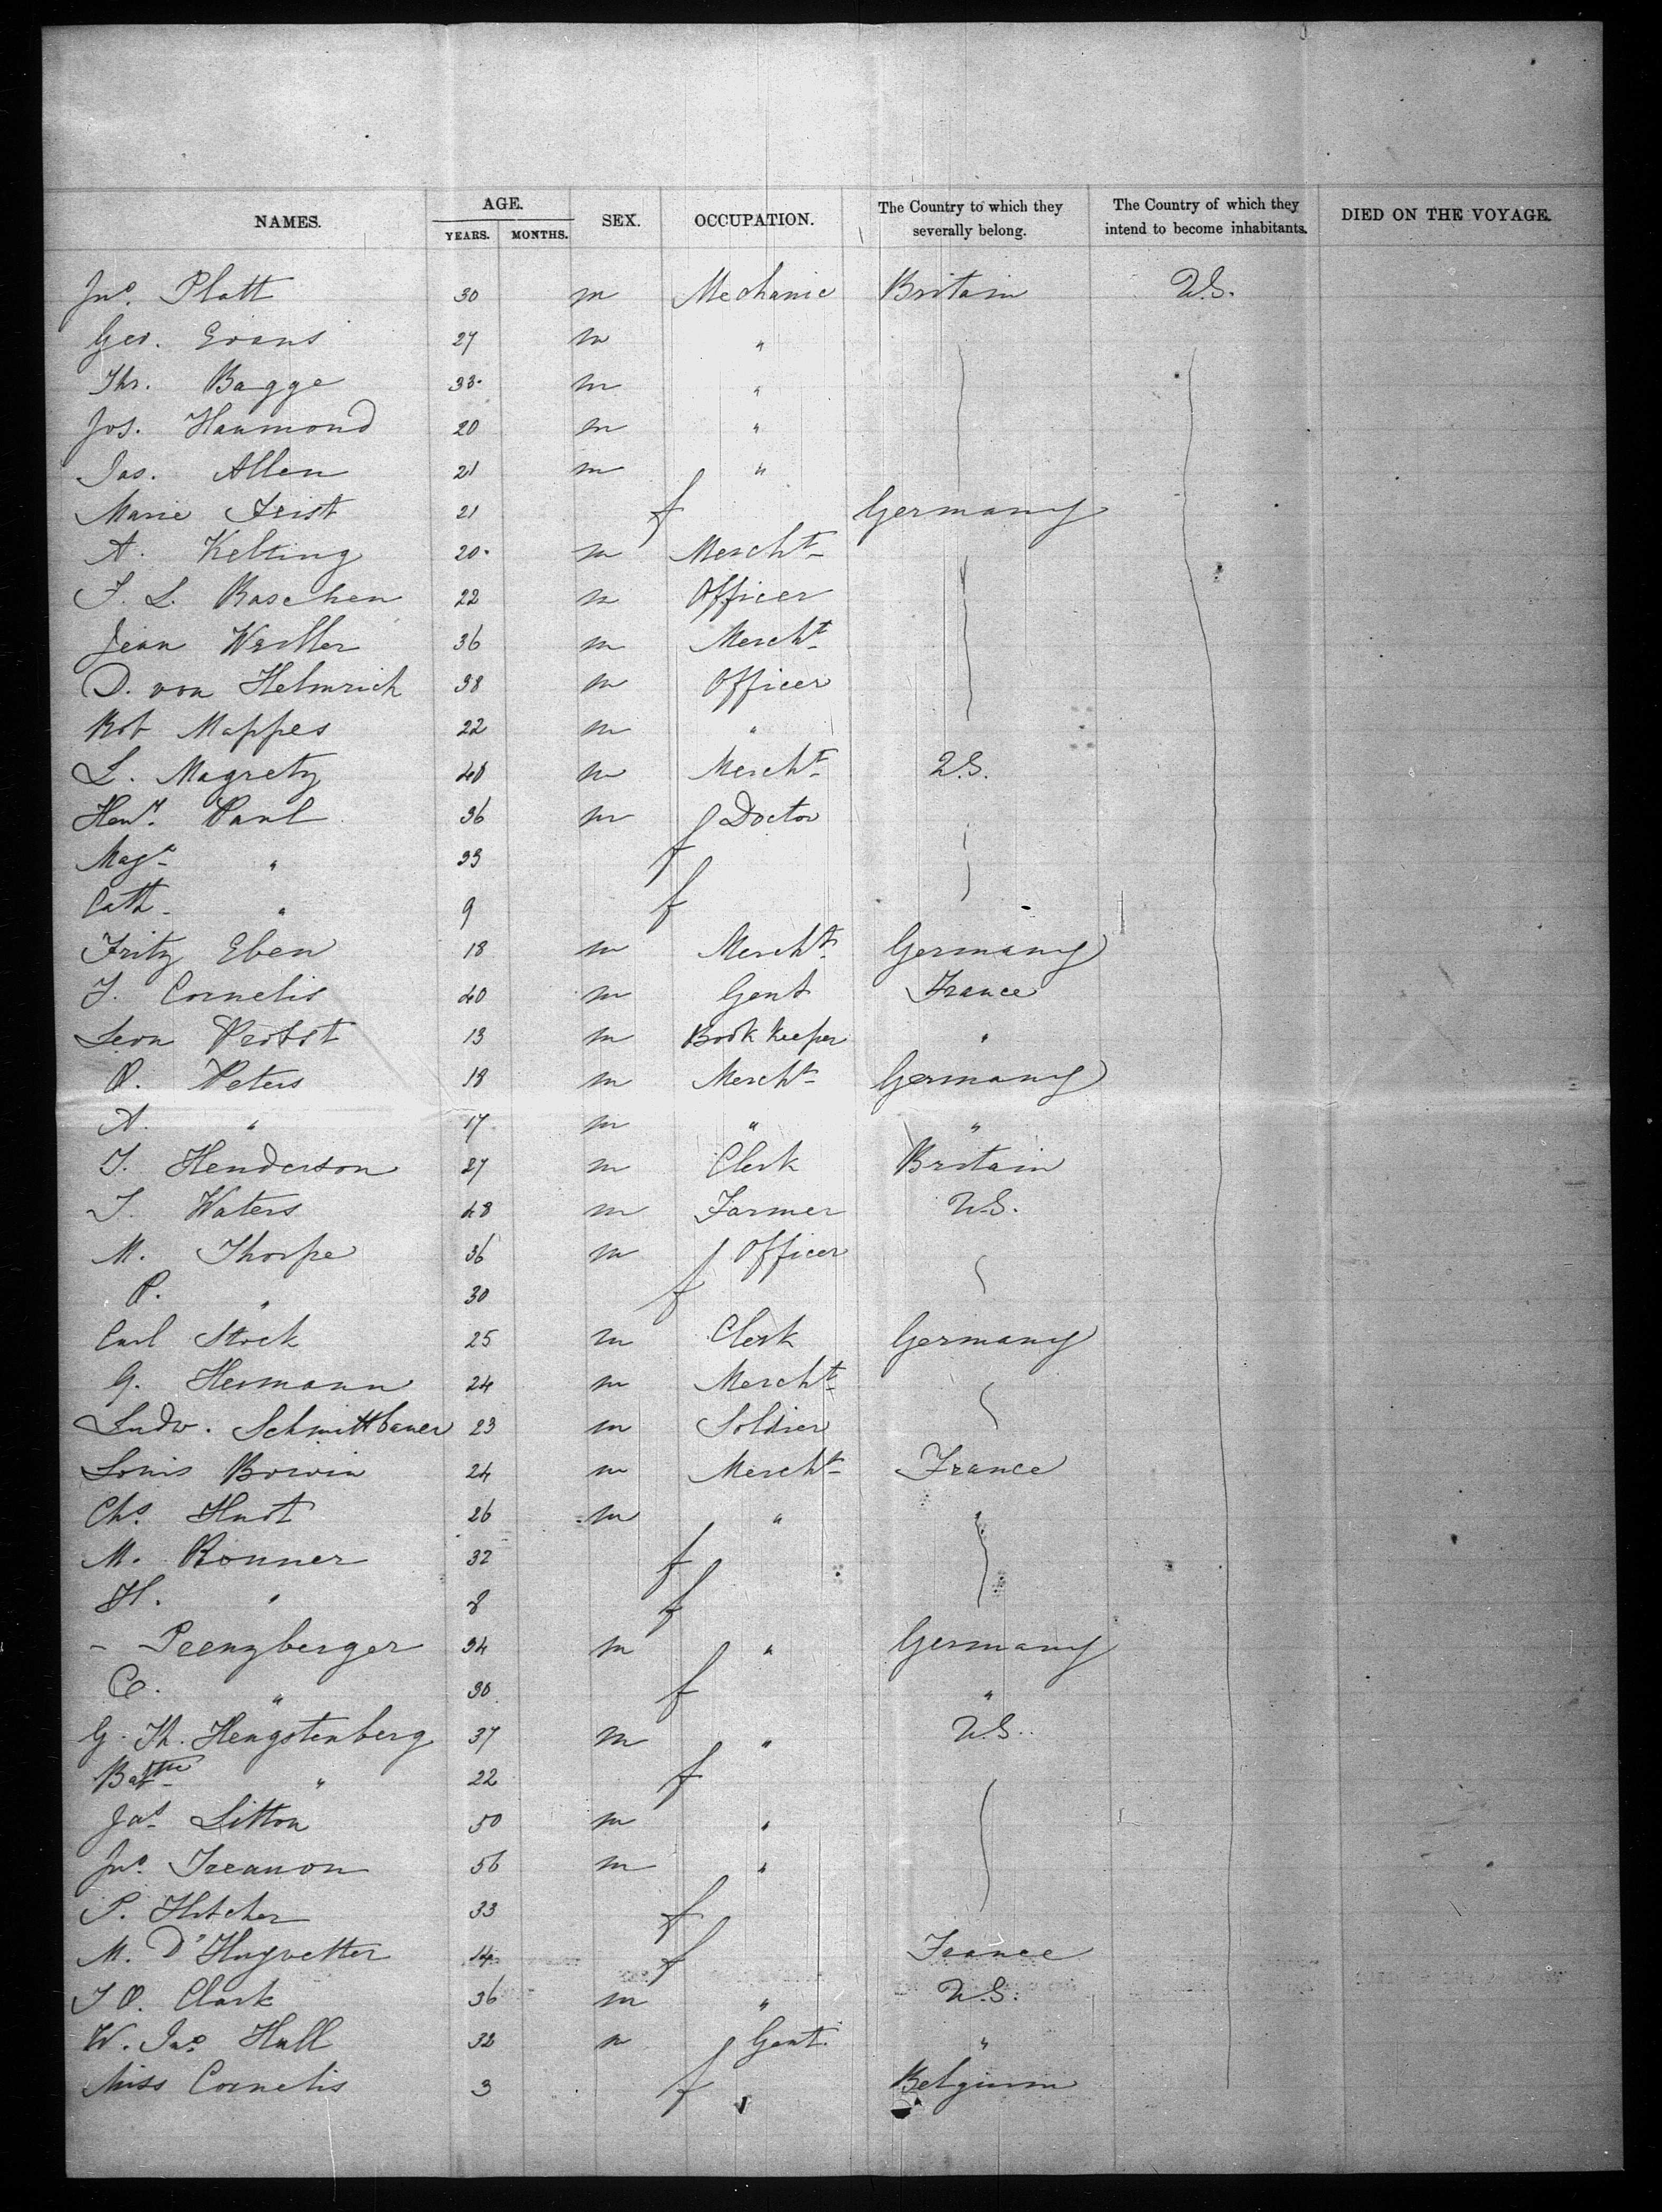 NAMES. AGE. SEX. OCCUPATION. The Country to which they severally belong. The Country of which they intend to become inhabitants. DIED ON THE VOYAGE.
YEARS. MONTHS.
Jno. Platt 30 m Mechanic Britain U.S.
Geo. Evans 27 m "
Thr. Bagge 33 m "
Jos. Hammond 20 m "
Jas. Allen 21 m "
Marie Frist 21 f Germany
A. Kelting 20 m Mercht
F. L. Raschen 22 m Officer
Jean Weiller 36 m Mercht
D. von Helmrich 38 m Officer
Rob Mappes 22 m "
L. Magretz 48 m Mercht U.S.
Heny. Paul 36 m Doctor
Maga " 33 f
Cath " 9 f
Fritz Eben 18 m Mercht Germany
J. Cornelis 40 m Gent France
Leon Probst 13 m Book Keeper "
O. Peters 18 m Mercht Germany
A. " 17 m " "
J. Henderson 27 m Clerk Britain
J. Waters 48 m Farmer U.S.
M. Thorpe 36 m Officer
P. " 30 f
Carl Stock 25 m Clerk Germany
G. Hermann 24 m Mercht
Ludw. Schmittbauer 23 m Soldier
Louis Boivin 24 m Mercht France
Chs. Hudt 26 m "
M. Ronner 32 f
H. " 8 f
- Peenzberger 34 m " Germany
C. " 30 f "
G. Th. Hengstenberg 37 m " U.S.
" 22 f
Jas Litton 50 m "
Jno. Treanon 56 m "
P. Hitcher 33 f
M. D'Huyvetter 14 f France
J O. Clark 36 m " U.S.
W. Jno. Hall 32 m Gent "
Miss Cornelis 3 f Belgium